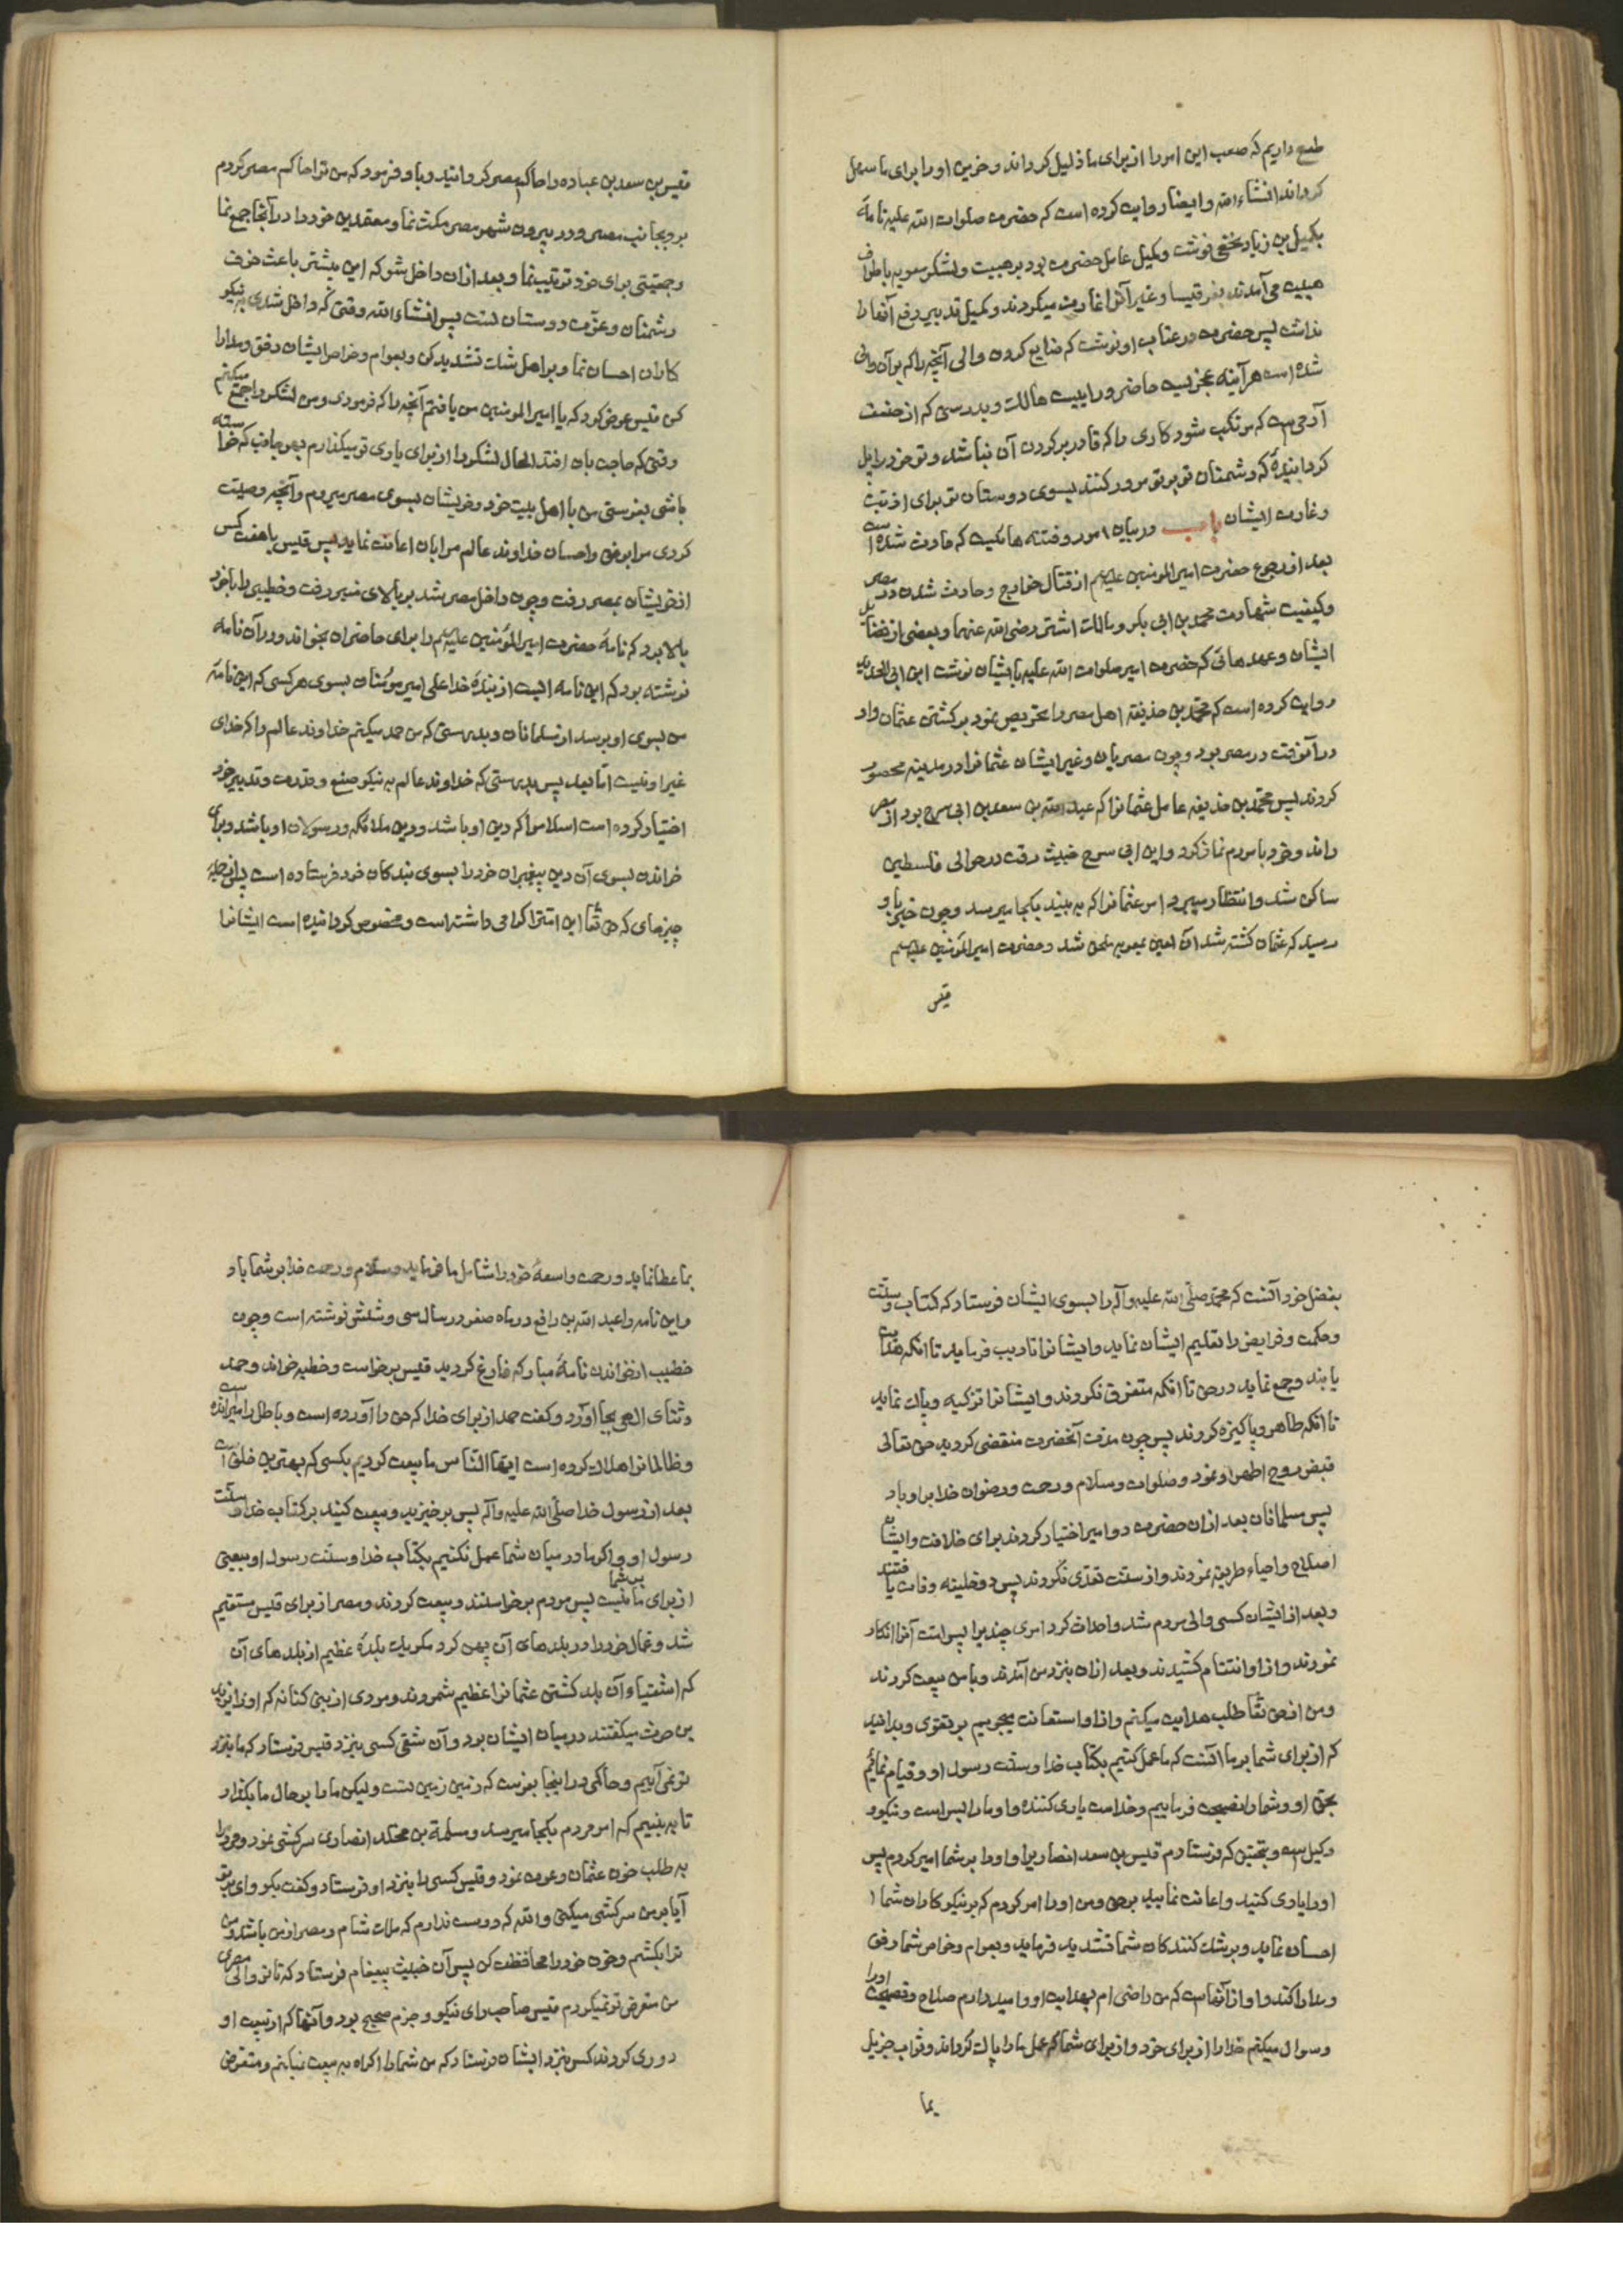 طمع داریم که صعب این امر را از برای ما ذلیل کرداند و حزین او را برای ما سهل
کرداند انشاء الله و ایضا روایت کرده است که حضرت صلوات الله علیه نامهٔ
بکمیل بن زیاد نخعی نوشت و کمیل عامل حضرت بود بر هیت و لشکر معویه باطراف
هیت می آمدند بقرقیسا و غیر آنرا غارت میکردند و کمیل تدبیر دفع آنها را
نداشت پس حضرت در عتاب او نوشت که ضایع کردن والی آنچه را که بر آن والی
شده است هر آینه عجزیست حاضر و راییست هالک و بدرستی که از خفت
آدمی است که مرتکب شود کاری را که قادر بر کردن آن نباشد و تو خود را پل
کردانیدهٔ که دشمنان تو بر تو مرور کنند بسوی دوستان تو برای اذیت
و غارت ایشان باب در بیان امور و فتنه هائیست که حادث شده است
بعد از رجوع حضرت امیر المومنین علیه السلم از قتال خوارج و حادث شدن در مصر
و کیفیت شهادت محمد بن ابی بکر و مالک اشتر رضی الله عنهما و بعضی از فضایل
ایشان و عهد هائی که حضرت امیر صلوات الله علیه بایشان نوشت ابن ابی الحدید
روایت کرده است که محمد بن حذیفه اهل مصر را تحریص نمود بر کشتن عثمان و او
در آنوقت در مصر بود و چون مصریان و غیر ایشان عثمانرا در مدینه محصور
کردند پس محمد بن حذیفه عامل عثمانرا که عبد الله بن سعد بن ابی سرح بود از مصر
راند و خود با مردم نماز کرد و ابن ابی سرح خبیث رفت در حوالی فلسطین
ساکن شد و انتظار میبرد امر عثمانرا که به بیند بکجا میرسد و چون خبر باو
رسید که عثمان کشته شد آن لعین بمعویه ملحق شد و حضرت امیر المؤمنین علیه السلم
قیس
قیس بن سعد بن عباده را حاکم مصر کردانید و باو فرمود که من ترا حاکم مصر کردم
برو بجانب مصر و در بیرون شهر مصر مکث نما و معتمدین خود را در آنجا جمع نما
و جمعیتی برای خود ترتیب نما و بعد از ان داخل شو که این بیشتر باعث خوف
دشمنان و عزّت دوستان تست پس انشاء الله وقتی که داخل شدی به نیکو
کاران احسان نما و بر اهل شک تشدید کن و بعوام و خواص ایشان رفق و مدارا
کن قیس عرض کرد که یا امیر المومنین من یافتم آنچه را که فرمودی و من لشکر را جمع میکنم
وقتی که حاجت بان افتد الحال لشکر را از برای یاری تو میکذارم بهر جانب که خواسته
باشی بفرستی من با اهل بیت خود و خویشان بسوی مصر میروم و آنچه وصیت
کردی مرا برفق و احسان خداوند عالم مرا بان اعانت نماید پس قیس با هفت کس
از خویشان بمصر رفت و چون داخل مصر شد بر بالای منبر رفت و خطیبی را با خود
بالا برد که نامهٔ حضرت امیر المؤمنین علیه السلم را برای حاضران بخواند و در آن نامه
نوشته بود که این نامه ایست از بندهٔ خدا علی امیر مؤمنان بسوی هر کسی که این نامهٔ
من بسوی او برسد از مسلمانان و بدرستی که من حمد میکنم خداوند عالم را که خدای
غیر او نیست اما بعد پس بدرستی که خداوند عالم به نیکو صنع و قدرت و تدبیر خود
اختیار کرده است اسلام را که دین او باشد و دین ملائکه و رسولان او باشد و برای
خواندن بسوی آن دین پیغمبران خود را بسوی بندکان خود فرستاده است پس از جمله
چیزهای که حق تعا این امّترا کرامی داشته است و مخصوص کردانیده است ایشانرا
بفضل خود آنست که محمد صلّی الله علیه و آله را بسوی ایشان فرستاد که کتاب و سنّت
و حکمت و فرایض را تعلیم ایشان نماید و ایشانرا تادیب فرماید تا انکه هدایت
یابند و جمع نماید در حق تا انکه متفرق نکردند و ایشانرا تزکیه و پاک نماید
تا انکه طاهر و پاکیزه کردند پس چون مدت آنحضرت منقضی کردید حق تعالی
قبض روح اطهر او نمود و صلوات و سلام و رحمت و رضوان خدا بر او باد
پس مسلمانان بعد از ان حضرت دو امیر اختیار کردند برای خلافت و ایشان
اصلاح و احیاء طریقه نمودند و از سنّت تعدی نکردند پس دو خلیفه وفات یافتند
و بعد از ایشان کسی والی مردم شد و احداث کرد امری چند برا پس امّت آنرا انکار
نمودند و از او انتقام کشیدند و بعد از ان بنزد من آمدند و با من بیعت کردند
و من از حق تعا طلب هدایت میکنم و از او استعانت میجویم بر تقوی و بدانید
که از برای شما بر ما آنست که ما عمل کنیم بکتاب خدا و سنّت رسول او و قیام نمائیم
بحق او و شما را نصیحت فرماییم و خداست یاری کننده و او ما را بس است و نیکو
وکیل است و بتحقیق که فرستادم قیس بن سعد انصاریرا و او را بر شما امیر کردم پس
او را یاری کنید و اعانت نمایید بر حق و من او را امر کردم که بر نیکو کاران شما
احسان نماید و بر شک کنندکان شما تشدید فرماید و بعوام و خواص شما رفق
و مدارا کند و او از آنهاست که من راضی ام بهدایت او و امید دارم صلاح و نصیحت او را
و سوال میکنم خدا را از برای خود و از برای شما که عمل ما را پاک کرداند و ثواب جزیل
بما
بما عطا نماید و رحمت واسعهٔ خود را شامل ما فرماید و سلام و رحمت خدا بر شما باد
و این نامه را عبد الله بن رافع در ماه صفر در سال سی و شش نوشته است و چون
خطیب از خواندن نامهٔ مبارکه فارغ کردید قیس برخاست و خطبه خواند و حمد
و ثنای الهی بجا آورد و کفت حمد از برای خدا که حق را آورده است و باطل را میرانده است
و ظالمانرا هلاک کرده است ایها النّاس ما بیعت کردیم بکسی که بهترین خلق است
بعد از رسول خدا صلّی الله علیه و آله پس برخیزید و بیعت کنید بر کتاب خدا و سنّت
رسول او و اکر ما در میان شما عمل نکنیم بکتاب خدا و سنّت رسول او بیعتی
از برای ما نیست بر شما پس مردم برخواستند و بیعت کردند و مصر از برای قیس مستقیم
شد و عمال خود را در بلدهای آن پهن کرد مکر یک بلدهٔ عظیم از بلدهای آن
که اشقیاء آن بلد کشتن عثمانرا عظیم شمردند و مردی از بنی کنانه که او را یزید
بن حرث میکفتند در میان ایشان بود و آن شقی کسی بنزد قیس فرستاد که ما بنزد
تو نمی آییم و حاکمی در اینجا بفرست که زمین زمین تست و لیکن ما را بر حال ما بکذار
تا به بینیم که امر مردم بکجا میرسد و مسلمة بن مخلد انصاری سرکشی نمود و مردم را
به طلب خون عثمان دعوت نمود و قیس کسی را بنزد او فرستاد و کفت بکو وای بر تو
آیا بر من سرکشی میکنی والله که دوست ندارم که ملک شام و مصر از من باشد و من
ترا بکشم و خون خود را محافظت کن پس آن خبیث پیغام فرستاد که تا تو والی مصری
من متعرض تو نمیکردم قیس صاحب رای نیکو و جزم صحیح بود و آنها که از بیعت او
دوری کردند کس بنزد ایشان فرستاد که من شما را اکراه به بیعت نمیکنم و متعرض